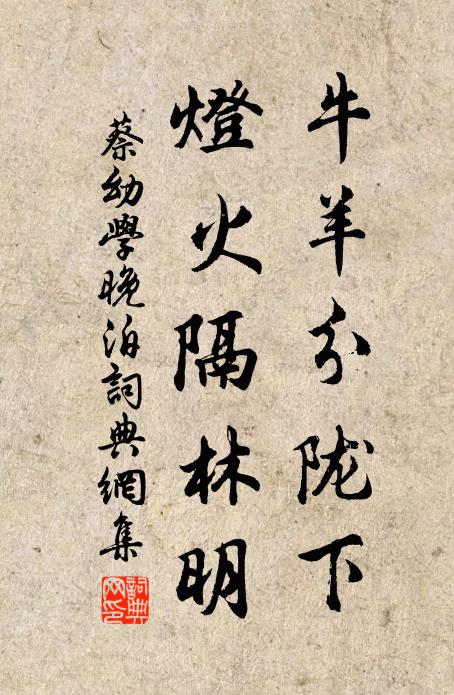 牛羊分陇下
燈火隔林明
蔡幼學晚泊詞典網集
詞典網印